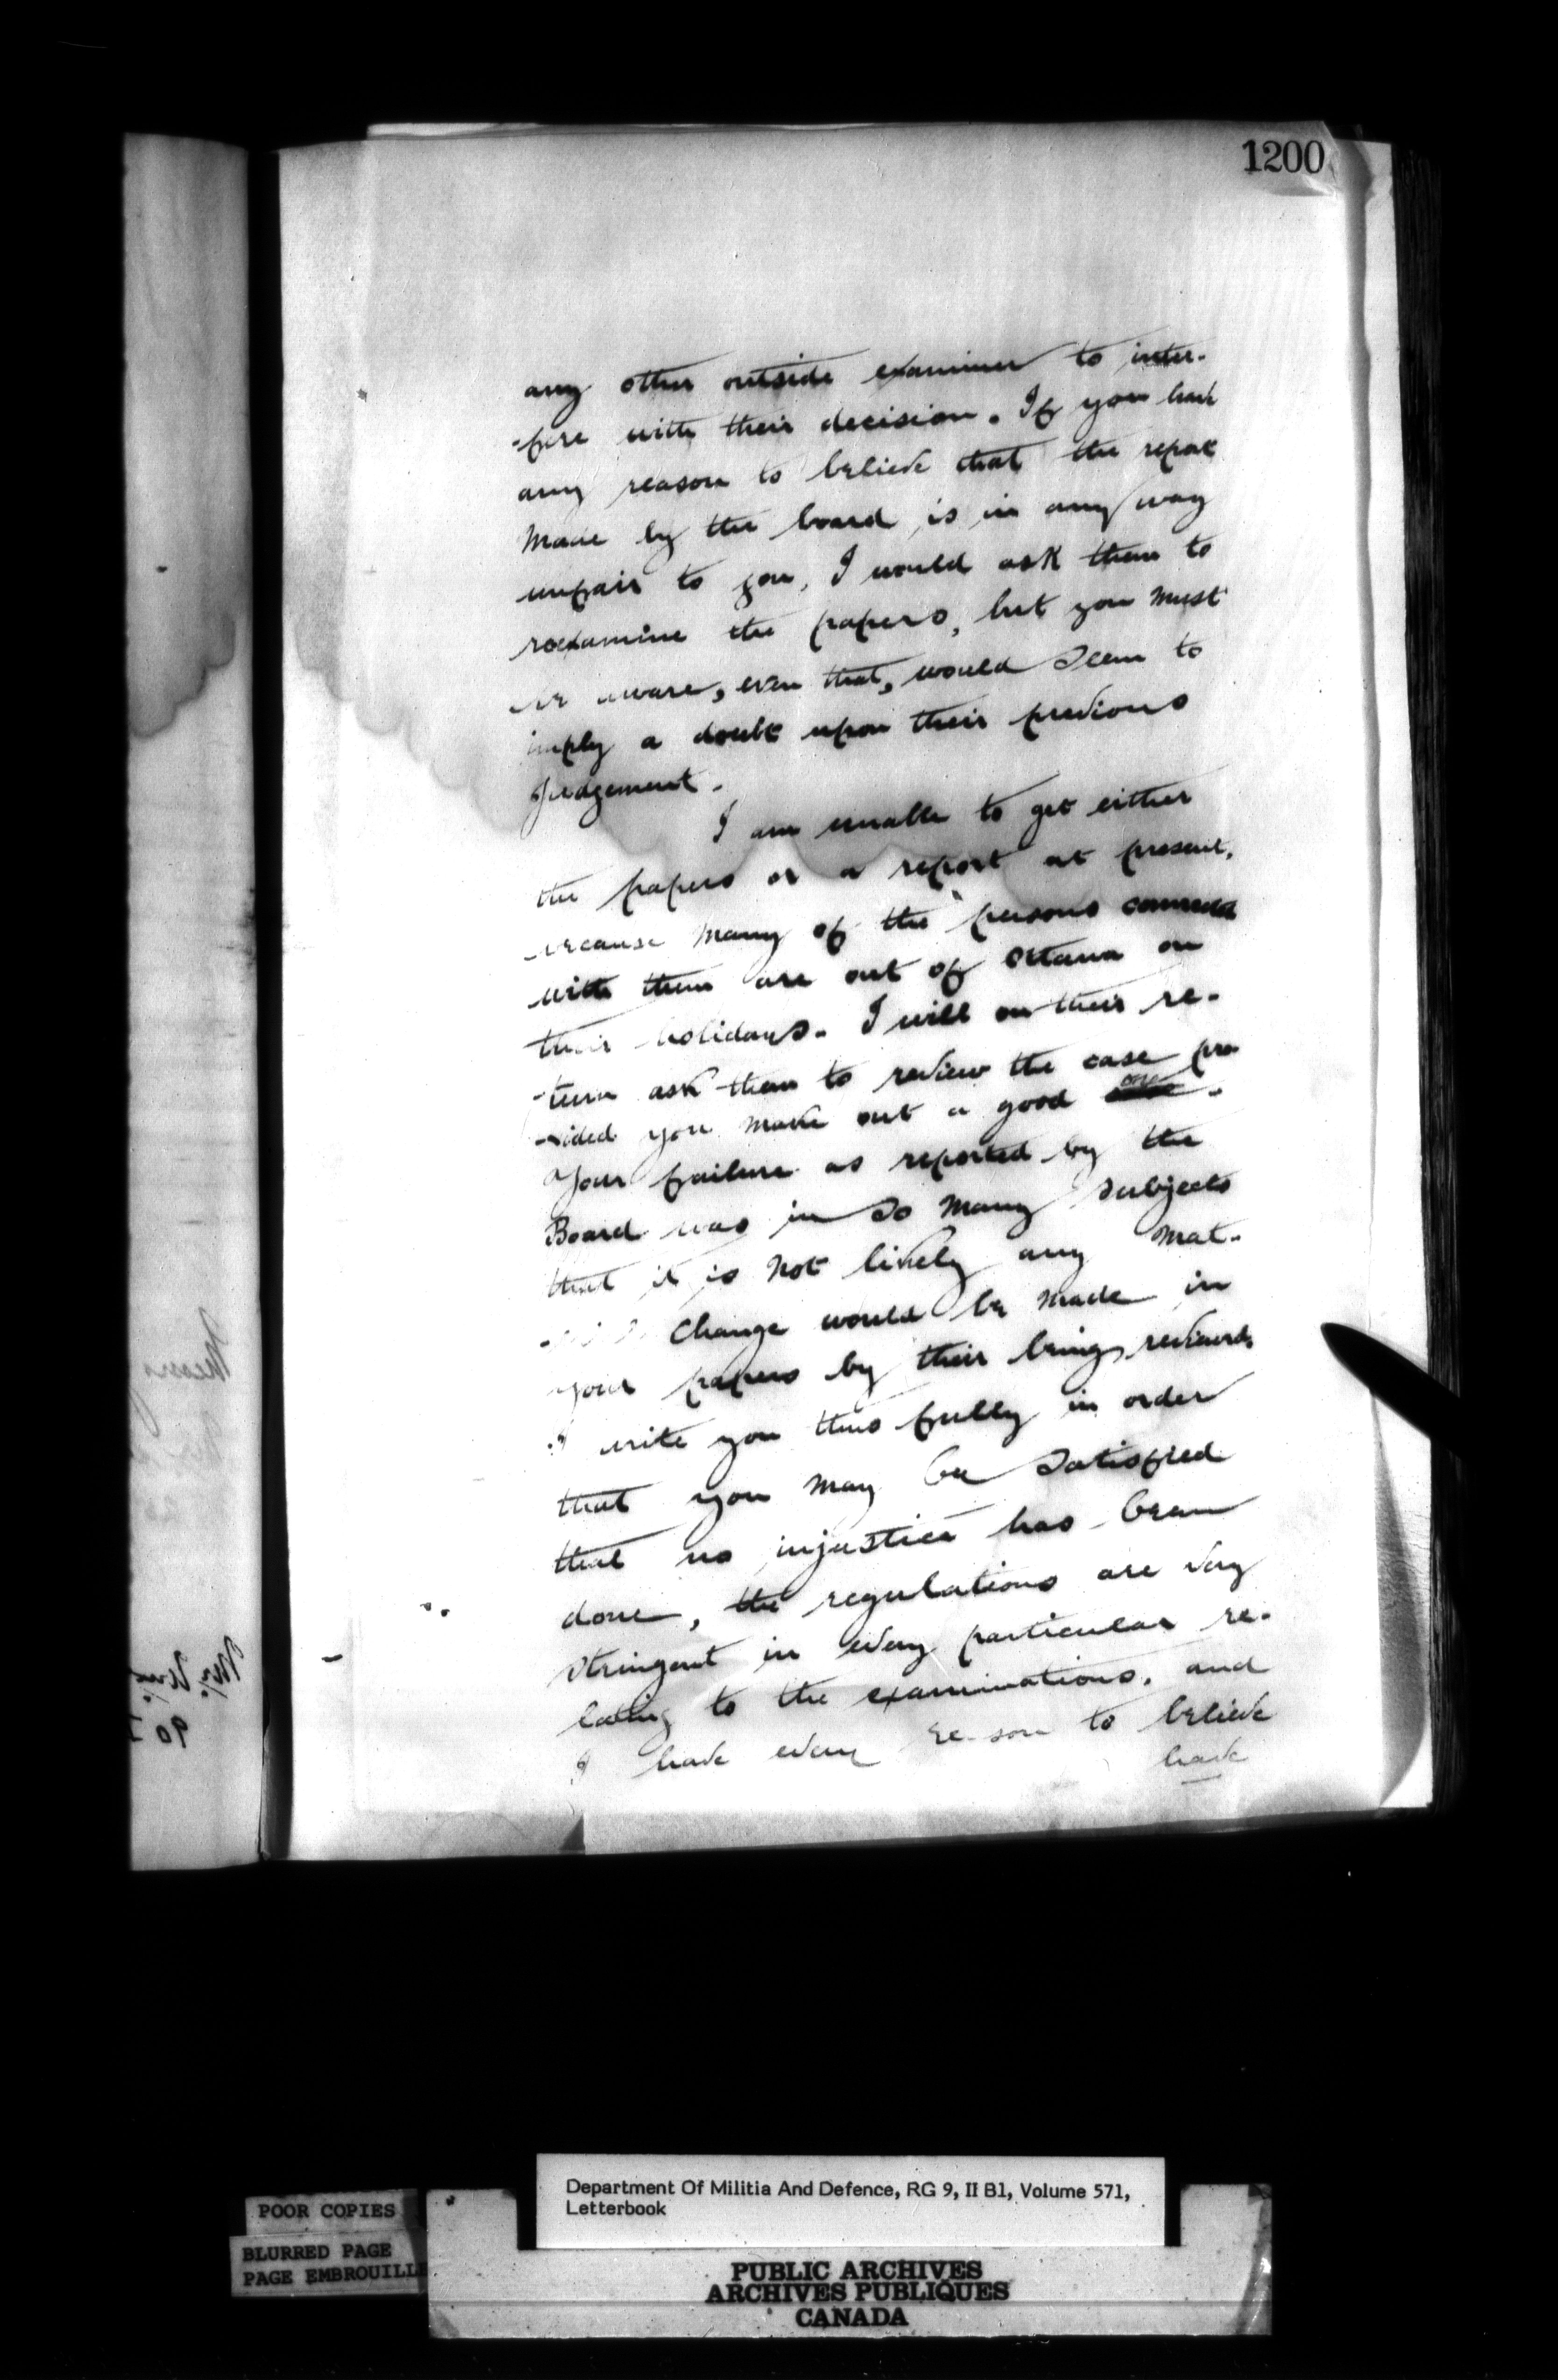 1200
any other outside examiner to inter-
-fere with their decision. If you have
any reason to believe that the report
made by the board, is in any way
unfair to you, I would ask them to
reexamine the papers, but you must
be aware, even that, would seem to
imply a doubt upon their previous
judgement.
I am unable to get either
the papers or a report at present,
because many of the persons connected
with them are out of Ottawa on
their holidays. I will on their re-
-turn ask them to review the case pro
-vided you make out a good one.
Your failure as reported by the
Board was in so many subjects
that it is not likely any mat-
change would be made in
your papers by their being reviewed.
I write you thus fully in order
that you may be satisfied
that no injustice has been
done, the regulations are very
stringent in every particular re-
lating to the examinations, and
I have every reason to believe
have
POOR COPIES
BLURRED PAGE
PAGE EMBROUILLE
Department Of Militia And Defence, RG 9, II B1, Volume 571,
Letterbook
PUBLIC ARCHIVES
ARCHIVES PUBLIQUES
CANADA